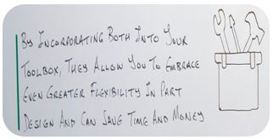 By Incorporating Both Into Your
Toolbox, They Allow You To Embrace
Even Greater Flexibility In Part
Design And Can Save Time And Money